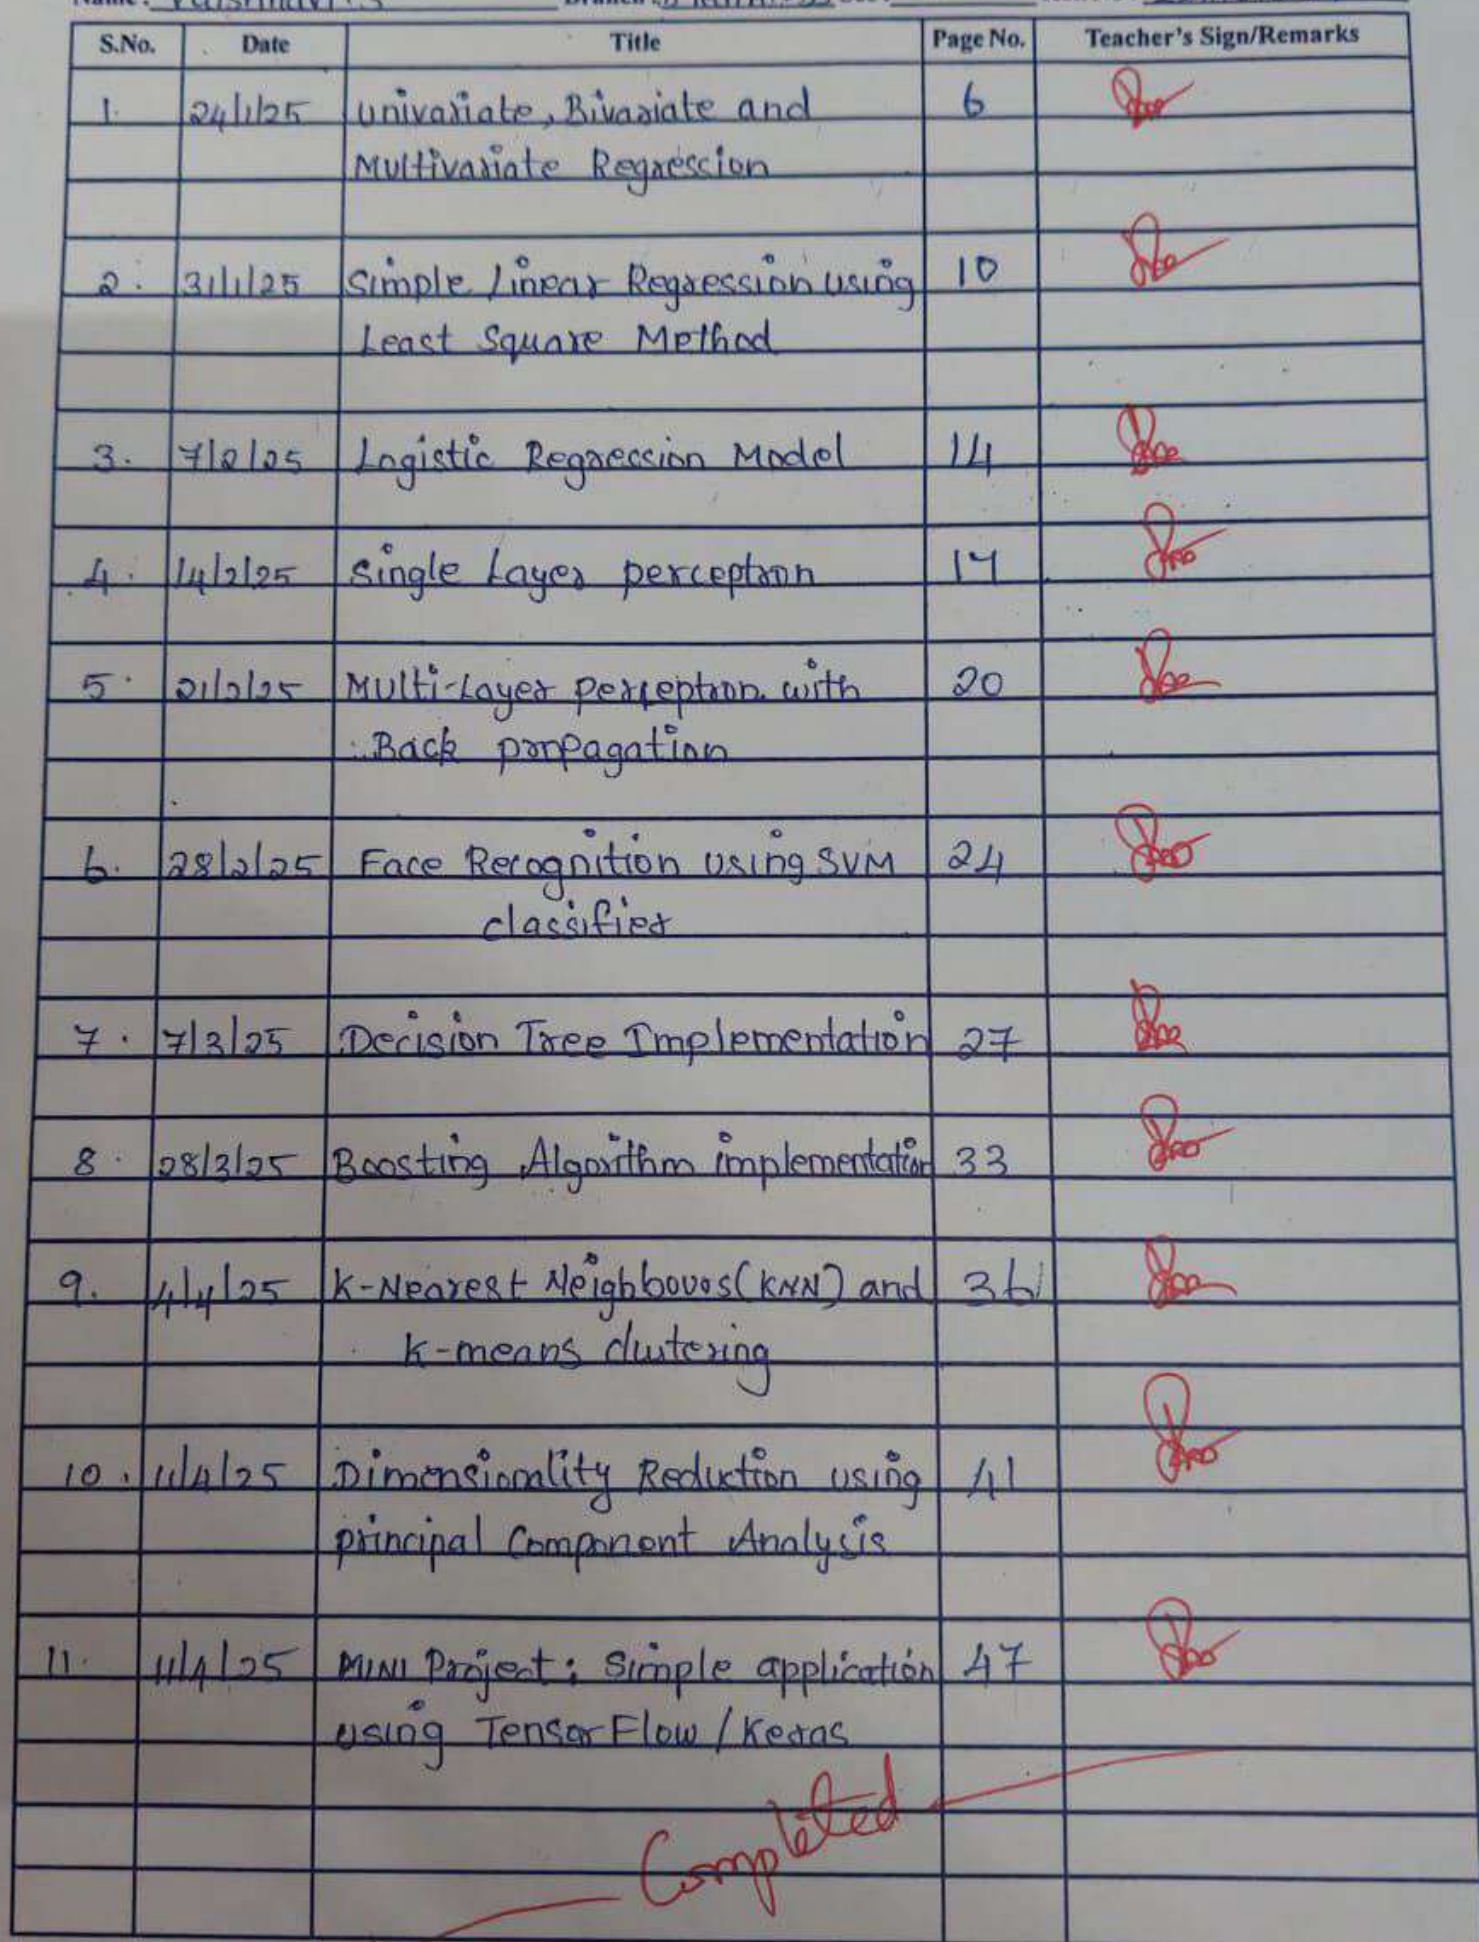 S.No. Date Title Page No. Teacher's Sign/Remarks
1. 24/1/25 Univariate, Bivariate and 6
Multivariate Regression
2. 31/1/25 Simple Linear Regression using 10
Least Square Method
3. 7/2/25 Logistic Regression Model 14
4. 14/2/25 Single Layer perceptron 17
5. 21/2/25 Multi-Layer perceptron with 20
Back propagation
6. 28/2/25 Face Recognition using SVM 24
classifier
7. 7/3/25 Decision Tree Implementation 27
8. 28/3/25 Boosting Algorithm implementation 33
9. 4/4/25 K-Nearest Neighbours(KNN) and 36
K-means clustering
10. 11/4/25 Dimensionality Reduction using 41
principal Component Analysis
11. 11/4/25 MINI Project: Simple application 47
using TensorFlow/Keras
Completed